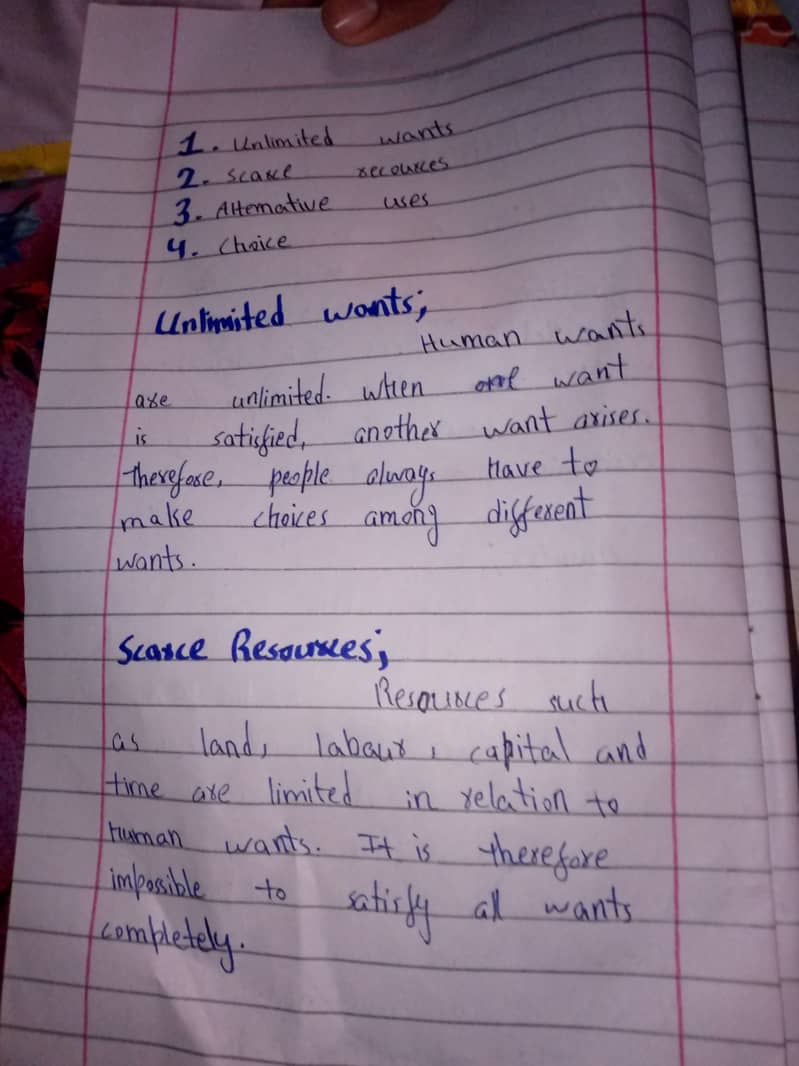 1. Unlimited wants
2. Scarce recources
3. Alternative uses
4. Choice
Unlimited wants;
Human wants
are unlimited. When one want
is satisfied, another want arises.
therefore, people always Have to
make choices among different
wants.
Scarce Resources;
Resources such
as land, labour, capital and
time are limited in relation to
Human wants. It is therefore
impossible to satisfy all wants
completely.